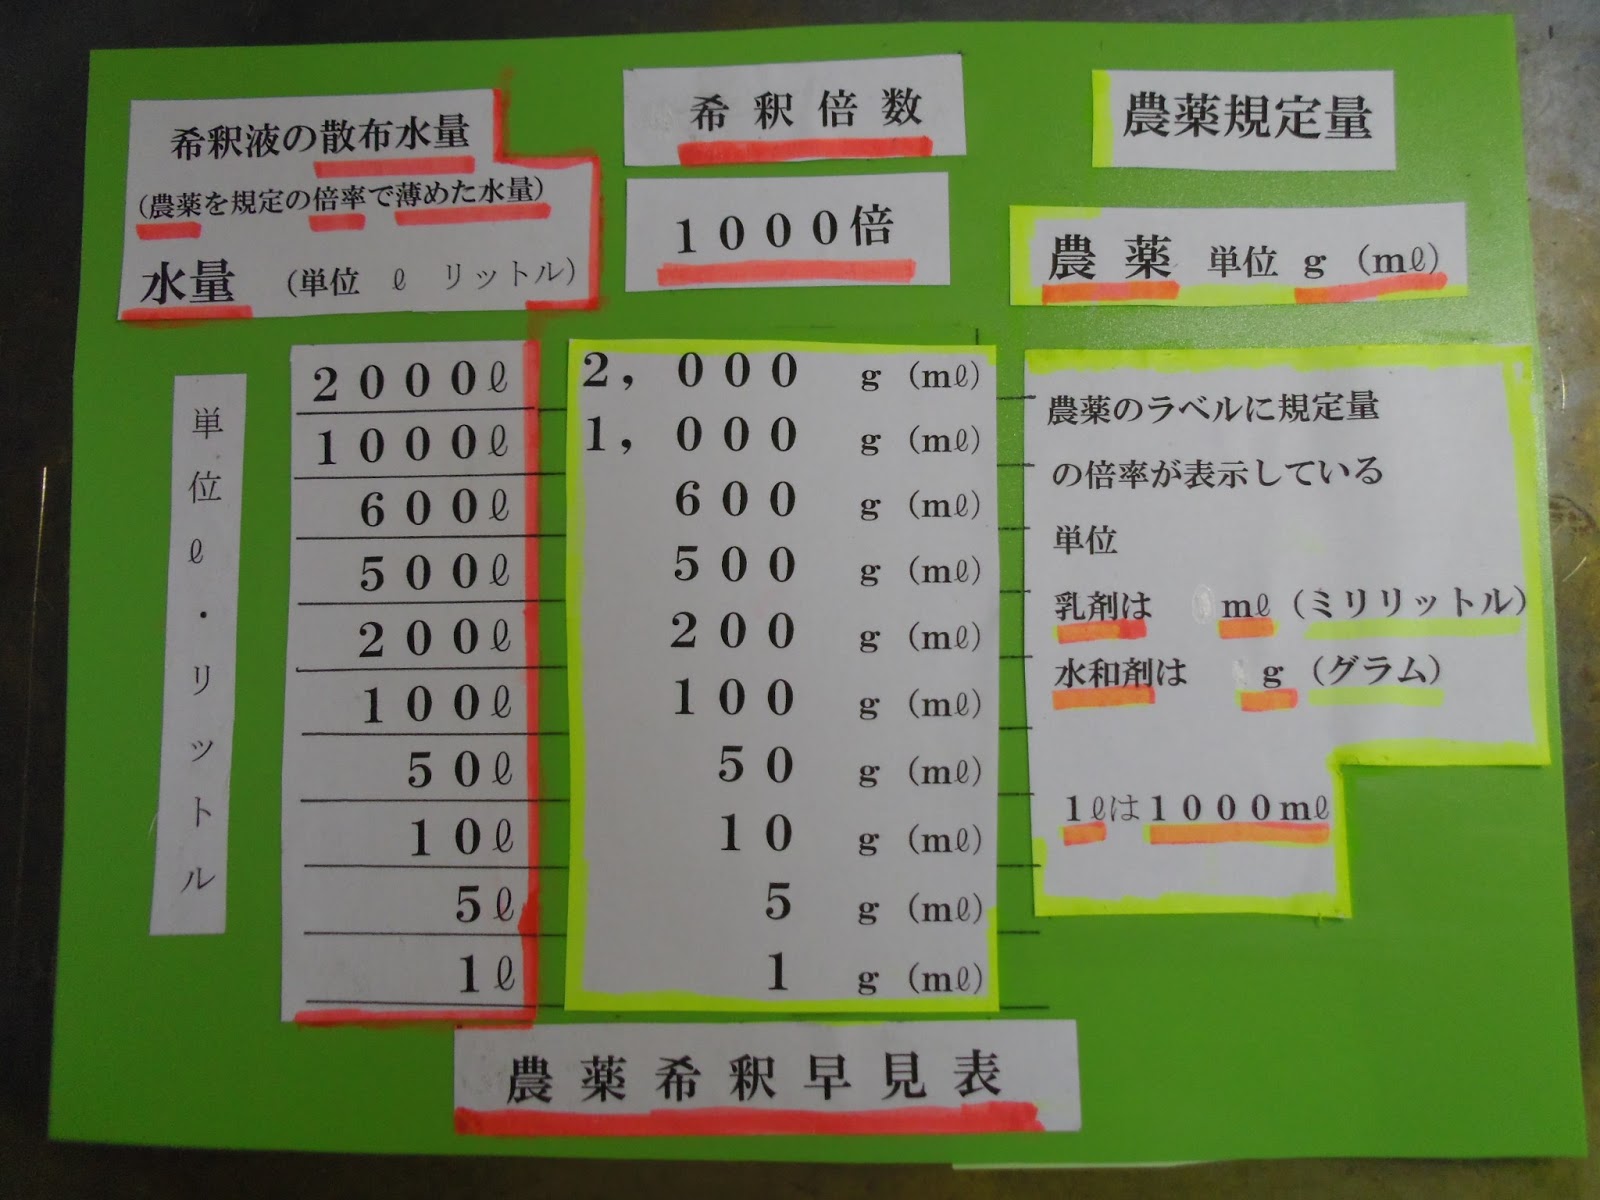 希釈液の散布水量
(農薬を規定の倍率で薄めた水量)
水量 (単位 ℓ リットル)
希釈倍数
1000倍
農薬規定量
農薬 単位 g (mℓ)
単位ℓ・リットル
2000ℓ 2,000 g (mℓ)
1000ℓ 1,000 g (mℓ)
600ℓ 600 g (mℓ)
500ℓ 500 g (mℓ)
200ℓ 200 g (mℓ)
100ℓ 100 g (mℓ)
50ℓ 50 g (mℓ)
10ℓ 10 g (mℓ)
5ℓ 5 g (mℓ)
1ℓ 1 g (mℓ)
農薬のラベルに規定量
の倍率が表示している
単位
乳剤は mℓ (ミリリットル)
水和剤は g (グラム)
1ℓは1000mℓ
農薬希釈早見表